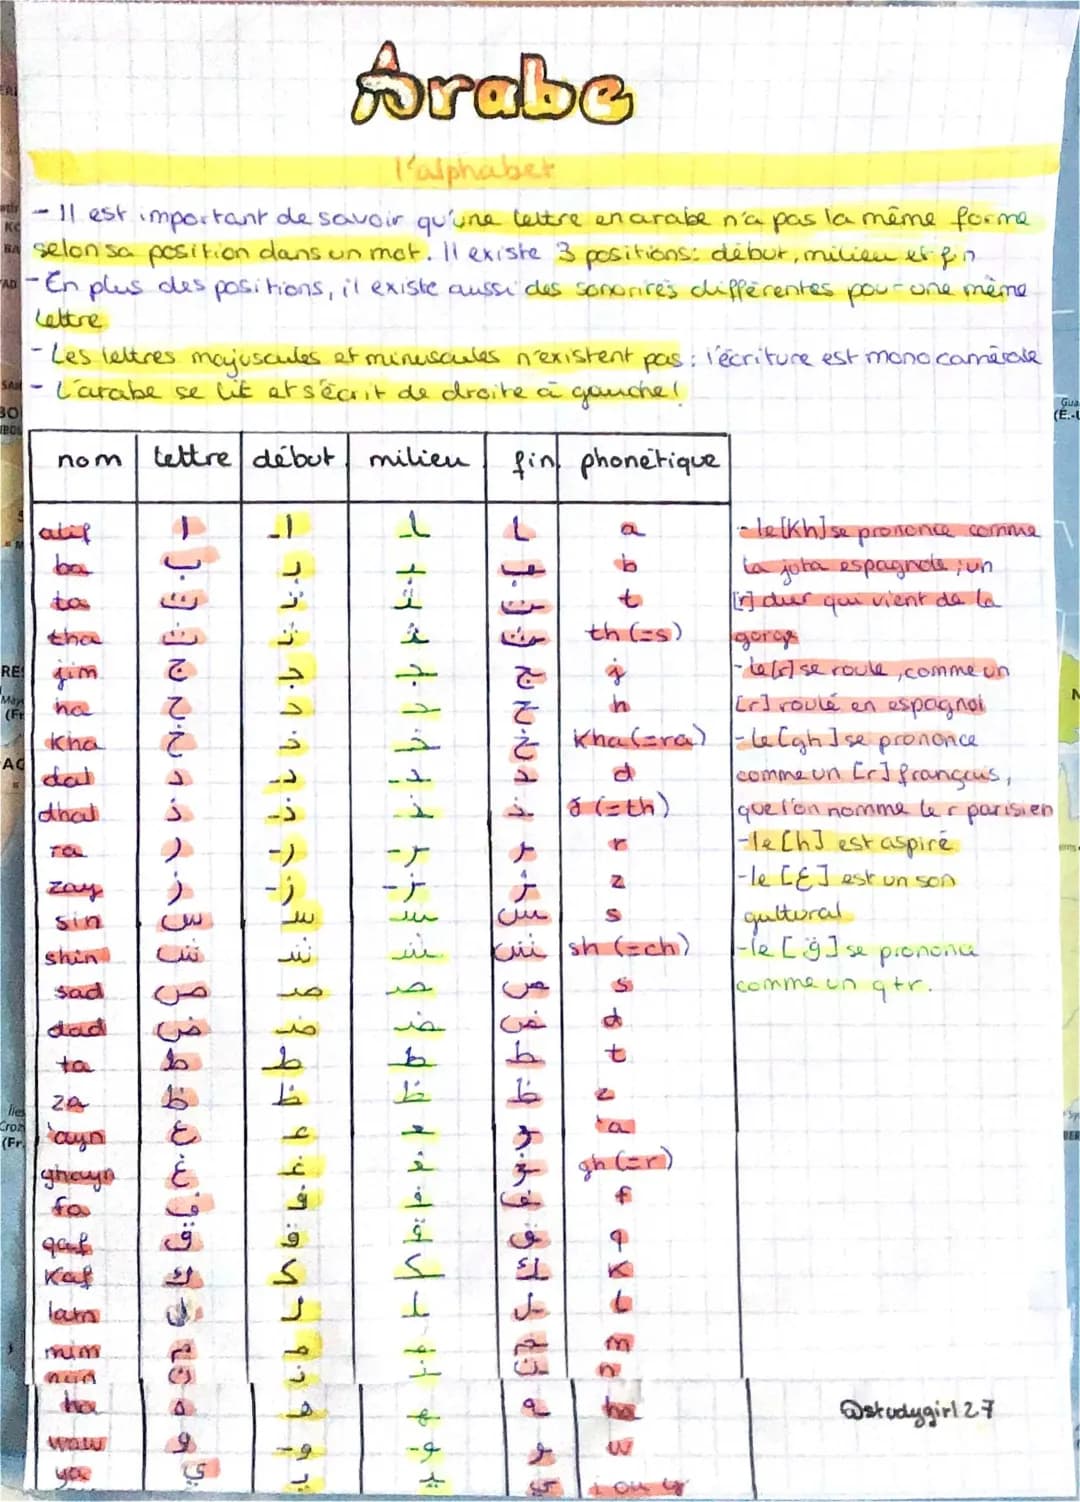 Arabe
l'alphabet
- Il est important de savoir qu'une lettre en arabe n'a pas la même forme
selon sa position dans un mot. Il existe 3 positions: début, milieu et fin
- En plus des positions, il existe aussi des sonorités différentes pour une même
lettre
- Les lettres majuscules et minuscules n'existent pas : l'écriture est monocamérale
- L'arabe se lit et s'écrit de droite à gauche!
nom lettre début milieu fin phonétique
alif ا ـا ـا ـا a
ba ب بـ ـبـ ـب b
ta ت تـ ـتـ ـت t
tha ث ثـ ـثـ ـث th (=s)
jim ج جـ ـجـ ـج j
ha ح حـ ـحـ ـح h
kha خ خـ ـخـ ـخ kha (=ra)
dal د د- ـد- ـد d
dhal ذ -ذ ـذ ـذ (=th)
ra ر -ر -ـر ـر r
zay ز -ز -ـز ـز z
sin س سـ ـسـ ـس s
shin ش شـ ـشـ ـش sh (=ch)
sad ص صـ ـصـ ـص s
dad ض ضـ ـضـ ـض d
ta ط ط ـطـ ـط t
za ظ ظ ـظـ ـظ z
'ayn ع عـ ـعـ ـع 'a
ghayn غ غـ ـغـ ـغ gh (=r)
fa ف فـ ـفـ ـف f
qaf ق قـ ـقـ ـق q
Kaf ك كـ ـكـ ـك K
lam ل لـ ـلـ ـل l
mim م مـ ـمـ ـم m
nun ن نـ ـنـ ـن n
ha ه هـ ـهـ ـه ha
waw و -و -و ـو w
ya ي يـ ـيـ ـي i ou y
- le [Kh] se prononce comme
la jota espagnole ; un
[r] dur qui vient de la
gorge
- le [r] se roule, comme un
[r] roulé en espagnol
- le [gh] se prononce
comme un [r] français,
que l'on nomme le r parisien
- le [h] est aspiré
- le [Ɛ] est un son
guttural
- le [g̈] se prononce
comme un g+r.
@studygirl27